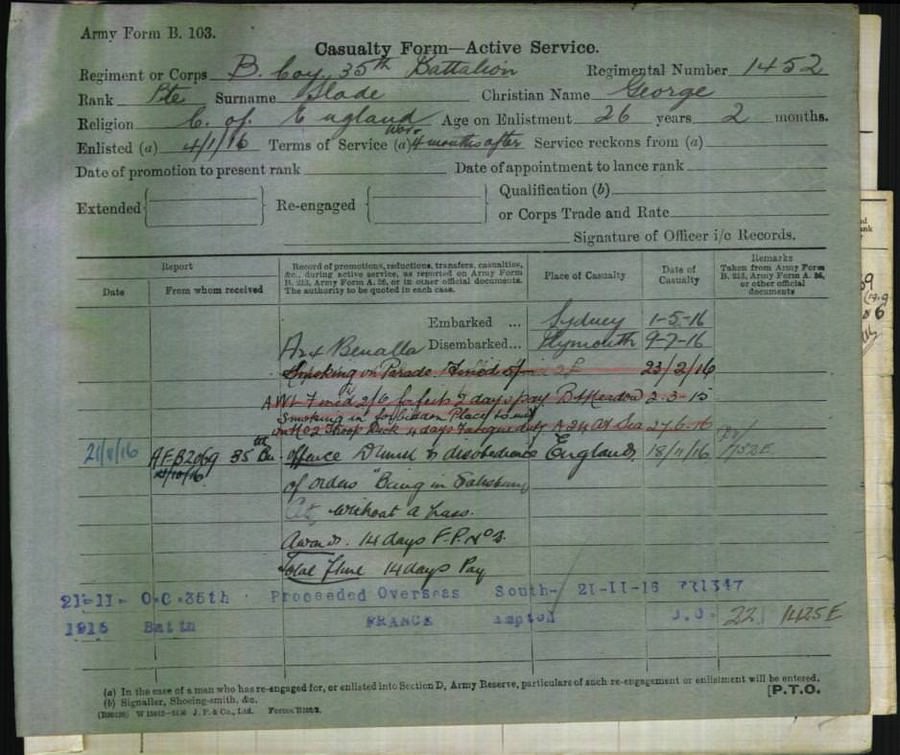 Army Form B. 103.
Casualty Form—Active Service.
Regiment or Corps B. Coy, 35th Battalion Regimental Number 1452
Rank Pte Surname Slade Christian Name George
Religion C. of England Age on Enlistment 26 years 2 months.
Enlisted (a) 4/1/16 Terms of Service (a) War 4 months after Service reckons from (a)
Date of promotion to present rank Date of appointment to lance rank
Extended Re-engaged Qualification (b)
or Corps Trade and Rate
Signature of Officer i/c Records.
Report
Date From whom received
Record of promotions, reductions, transfers, casualties, &c., during active service, as reported on Army Form B. 213, Army Form A. 36, or in other official documents. The authority to be quoted in each case.
Place of Casualty
Date of Casualty
Remarks
Taken from Army Form B. 213, Army Form A. 36, or other official documents
Embarked ... Sydney 1-5-16
Benalla Disembarked... Plymouth 9-7-16
Smoking on Parade Fined 5/- 23/2/16
AWL Fined 2/6 forfeits 2 days pay 2-3-16
Smoking in forbidden Place
on No 2 Troop Deck 4 days Fatigue duty At Sea 27-6-16
21/11/16 AFB2069 35 Bn offence Drunk & disobedience England 18/11/16
of orders "Being in Salisbury
without a pass.
Award. 14 days F.P. No 2.
Total 14 days Pay
21-11- O.C. 35th Proceeded Overseas South- 21-11-16
1916 Battn FRANCE ampton J.O. 22 1425E
(a) In the case of a man who has re-engaged for, or enlisted into Section D, Army Reserve, particulars of such re-engagement or enlistment will be entered.
(b) Signaller, Shoeing-smith, &c.
[P.T.O.
J. P. & Co., Ltd.